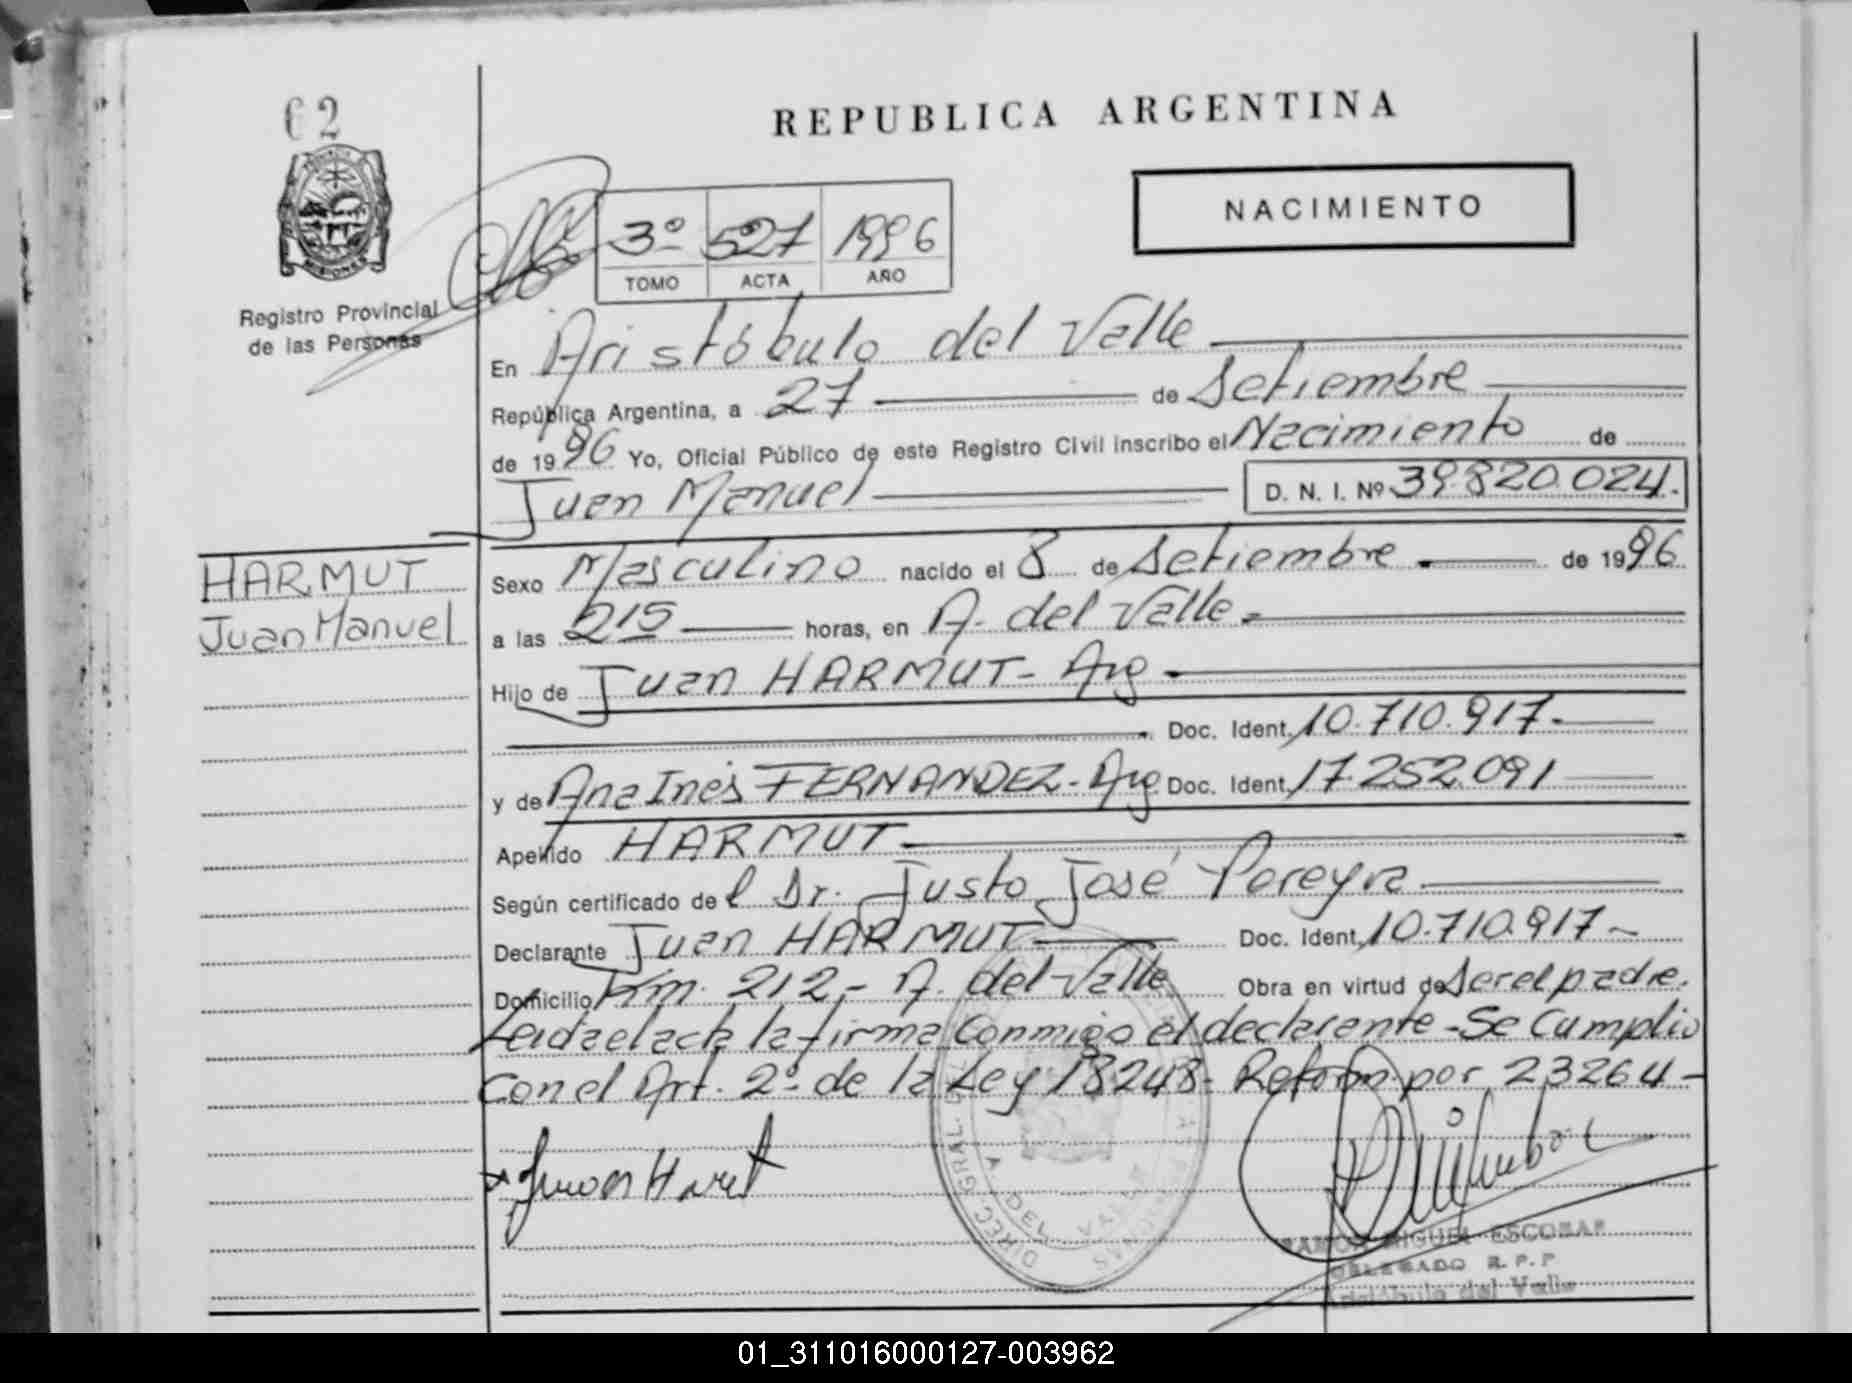 62
REPUBLICA ARGENTINA
NACIMIENTO
3º 527 1996
TOMO ACTA AÑO
MISIONES
Registro Provincial
de las Personas
En Aristóbulo del Valle
República Argentina, a 27 de Setiembre
de 1996 Yo, Oficial Público de este Registro Civil inscribo el Nacimiento de
Juan Manuel D. N. I. Nº 39820.024.
HARMUT
Juan Manuel
Sexo Masculino nacido el 8 de Setiembre de 1996
a las 215 horas, en A. del Valle
Hijo de Juan HARMUT - Arg
Doc. Ident. 10.710.917-
y de Ana Inés FERNANDEZ - Arg Doc. Ident. 17.252.091
Apellido HARMUT
Según certificado del Dr. Justo José Pereyra
Declarante Juan HARMUT Doc. Ident. 10.710.917-
Domicilio Km. 212,- A. del Valle Obra en virtud de ser el padre.
Leida el acta la firma conmigo el declarante - Se Cumplio
Con el Art. 2º de la Ley 18248- Reform. por 23264-
RAMON MIGUEL ESCOBAR
DELEGADO R.P.P
Aristóbulo del Valle
01_311016000127-003962